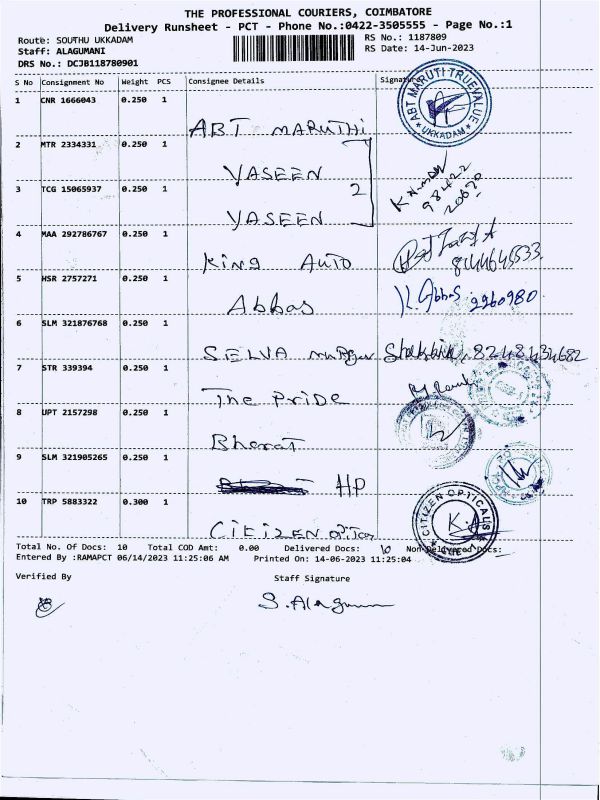 THE PROFESSIONAL COURIERS, COIMBATORE
Delivery Runsheet - PCT - Phone No.:0422-3505555 - Page No.:1
Route: SOUTHU UKKADAM RS No.: 1187809
Staff: ALAGUMANI RS Date: 14-Jun-2023
DRS No.: DCJB118780901
S No Consignment No Weight PCS Consignee Details Signature
ABT MARUTI TRUEVALUE
* UKKADAM *
1 CNR 1666043 0.250 1
ABT MARUTHI
2 MTR 2334331 0.250 1
YASEEN
2
98422
20690
3 TCG 15065937 0.250 1
YASEEN
4 MAA 292786767 0.250 1
King AUTO
5 HSR 2757271 0.250 1
Abbas K. Abbas 2260980
6 SLM 321876768 0.250 1
SELVA 8248434682
7 STR 339394 0.250 1
The PriDe
8 UPT 2157298 0.250 1
Bharat
9 SLM 321905265 0.250 1
HP
10 TRP 5883322 0.300 1
CITIZEN OPTICALS
CiEiZEN
Total No. Of Docs: 10 Total COD Amt: 0.00 Delivered Docs: 10 Non-Delivered Docs:
Entered By :RAMAPCT 06/14/2023 11:25:06 AM Printed On: 14-06-2023 11:25:04
Verified By Staff Signature
S. Alagu